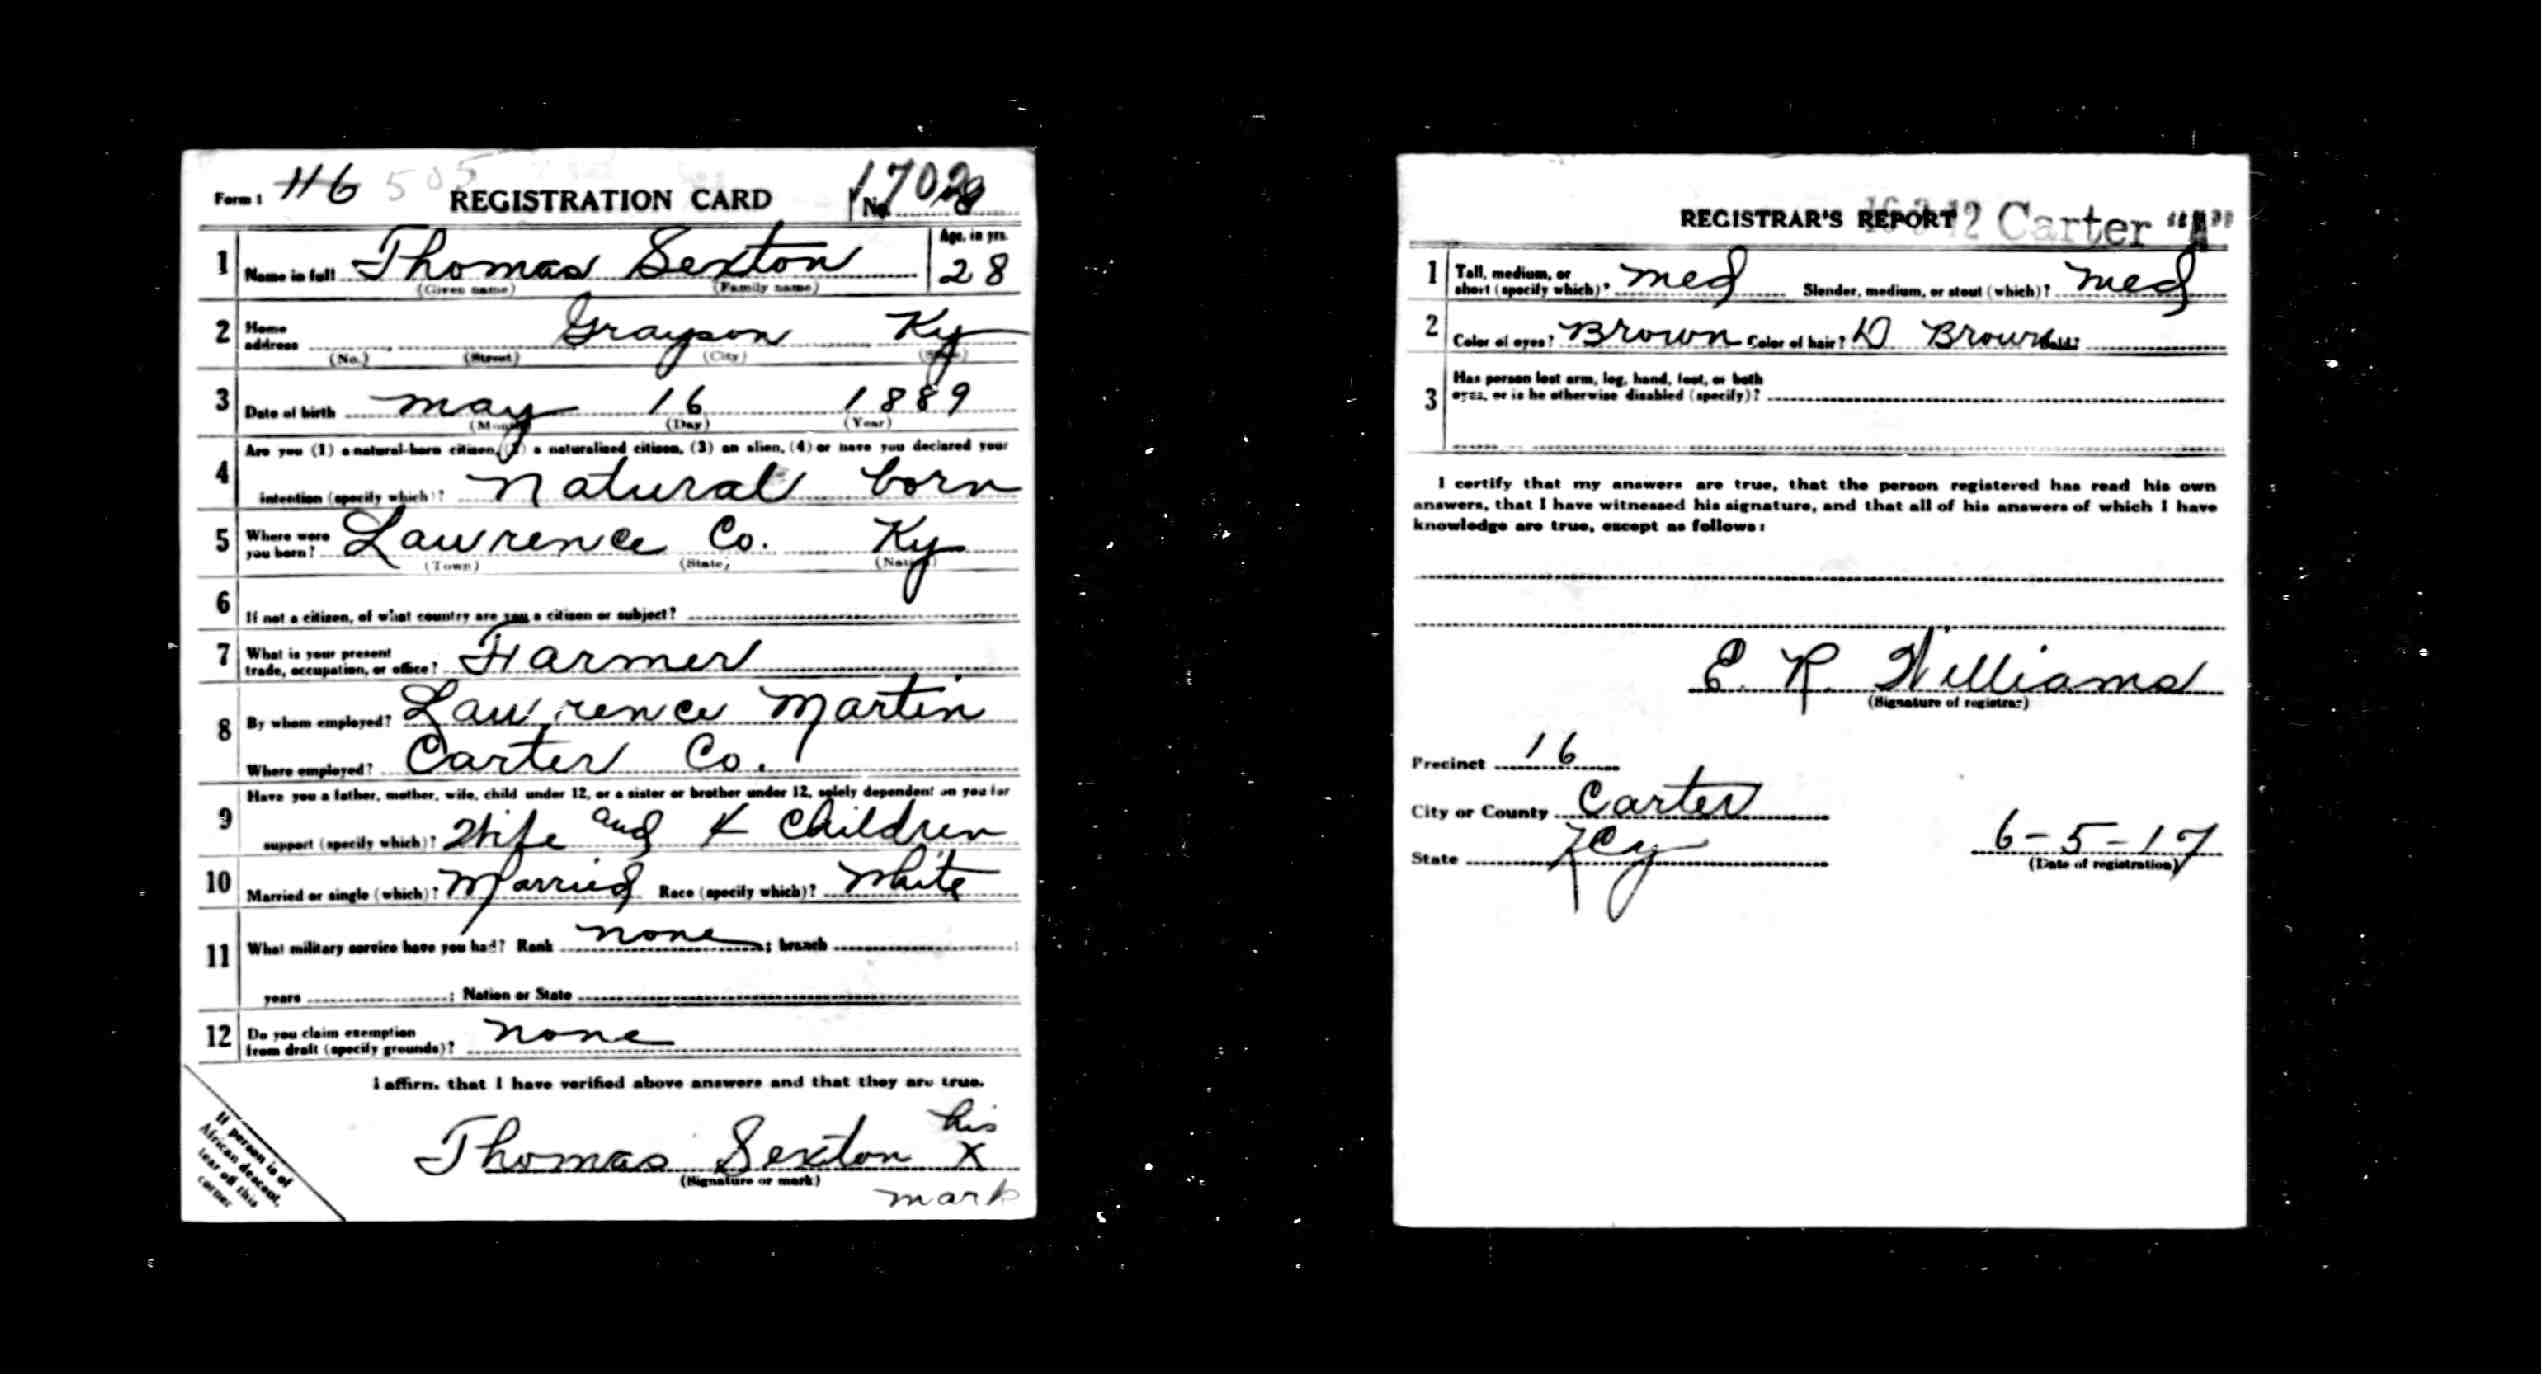 Form 1 116 505 REGISTRATION CARD No. 1702
1 Name in full Thomas Sexton Age, in yrs. 28
(Given name) (Family name)
2 Home address Grayson Ky
(No.) (Street) (City) (State)
3 Date of birth May 16 1889
(Month) (Day) (Year)
4 Are you (1) a natural-born citizen, (2) a naturalized citizen, (3) an alien, (4) or have you declared your
intention (specify which)? Natural born
5 Where were you born? Lawrence Co. Ky
(Town) (State) (Nation)
6 If not a citizen, of what country are you a citizen or subject?
7 What is your present trade, occupation, or office? Farmer
8 By whom employed? Lawrence Martin
Where employed? Carter Co.
9 Have you a father, mother, wife, child under 12, or a sister or brother under 12, solely dependent on you for
support (specify which)? Wife and 4 Children
10 Married or single (which)? Married Race (specify which)? White
11 What military service have you had? Rank none ; branch
years ; Nation or State
12 Do you claim exemption from draft (specify grounds)? none
I affirm that I have verified above answers and that they are true.
his
Thomas Sexton X
(Signature or mark)
mark
If person is of
African descent,
tear off this
corner
REGISTRAR'S REPORT Carter "A"
1 Tall, medium, or short (specify which)? Med Slender, medium, or stout (which)? Med
2 Color of eyes? Brown Color of hair? D Brown Bald?
3 Has person lost arm, leg, hand, foot, or both
eyes, or is he otherwise disabled (specify)?
I certify that my answers are true, that the person registered has read his own
answers, that I have witnessed his signature, and that all of his answers of which I have
knowledge are true, except as follows:
E. R. Williams
(Signature of registrar)
Precinct 16
City or County Carter
State Ky 6-5-17
(Date of registration)